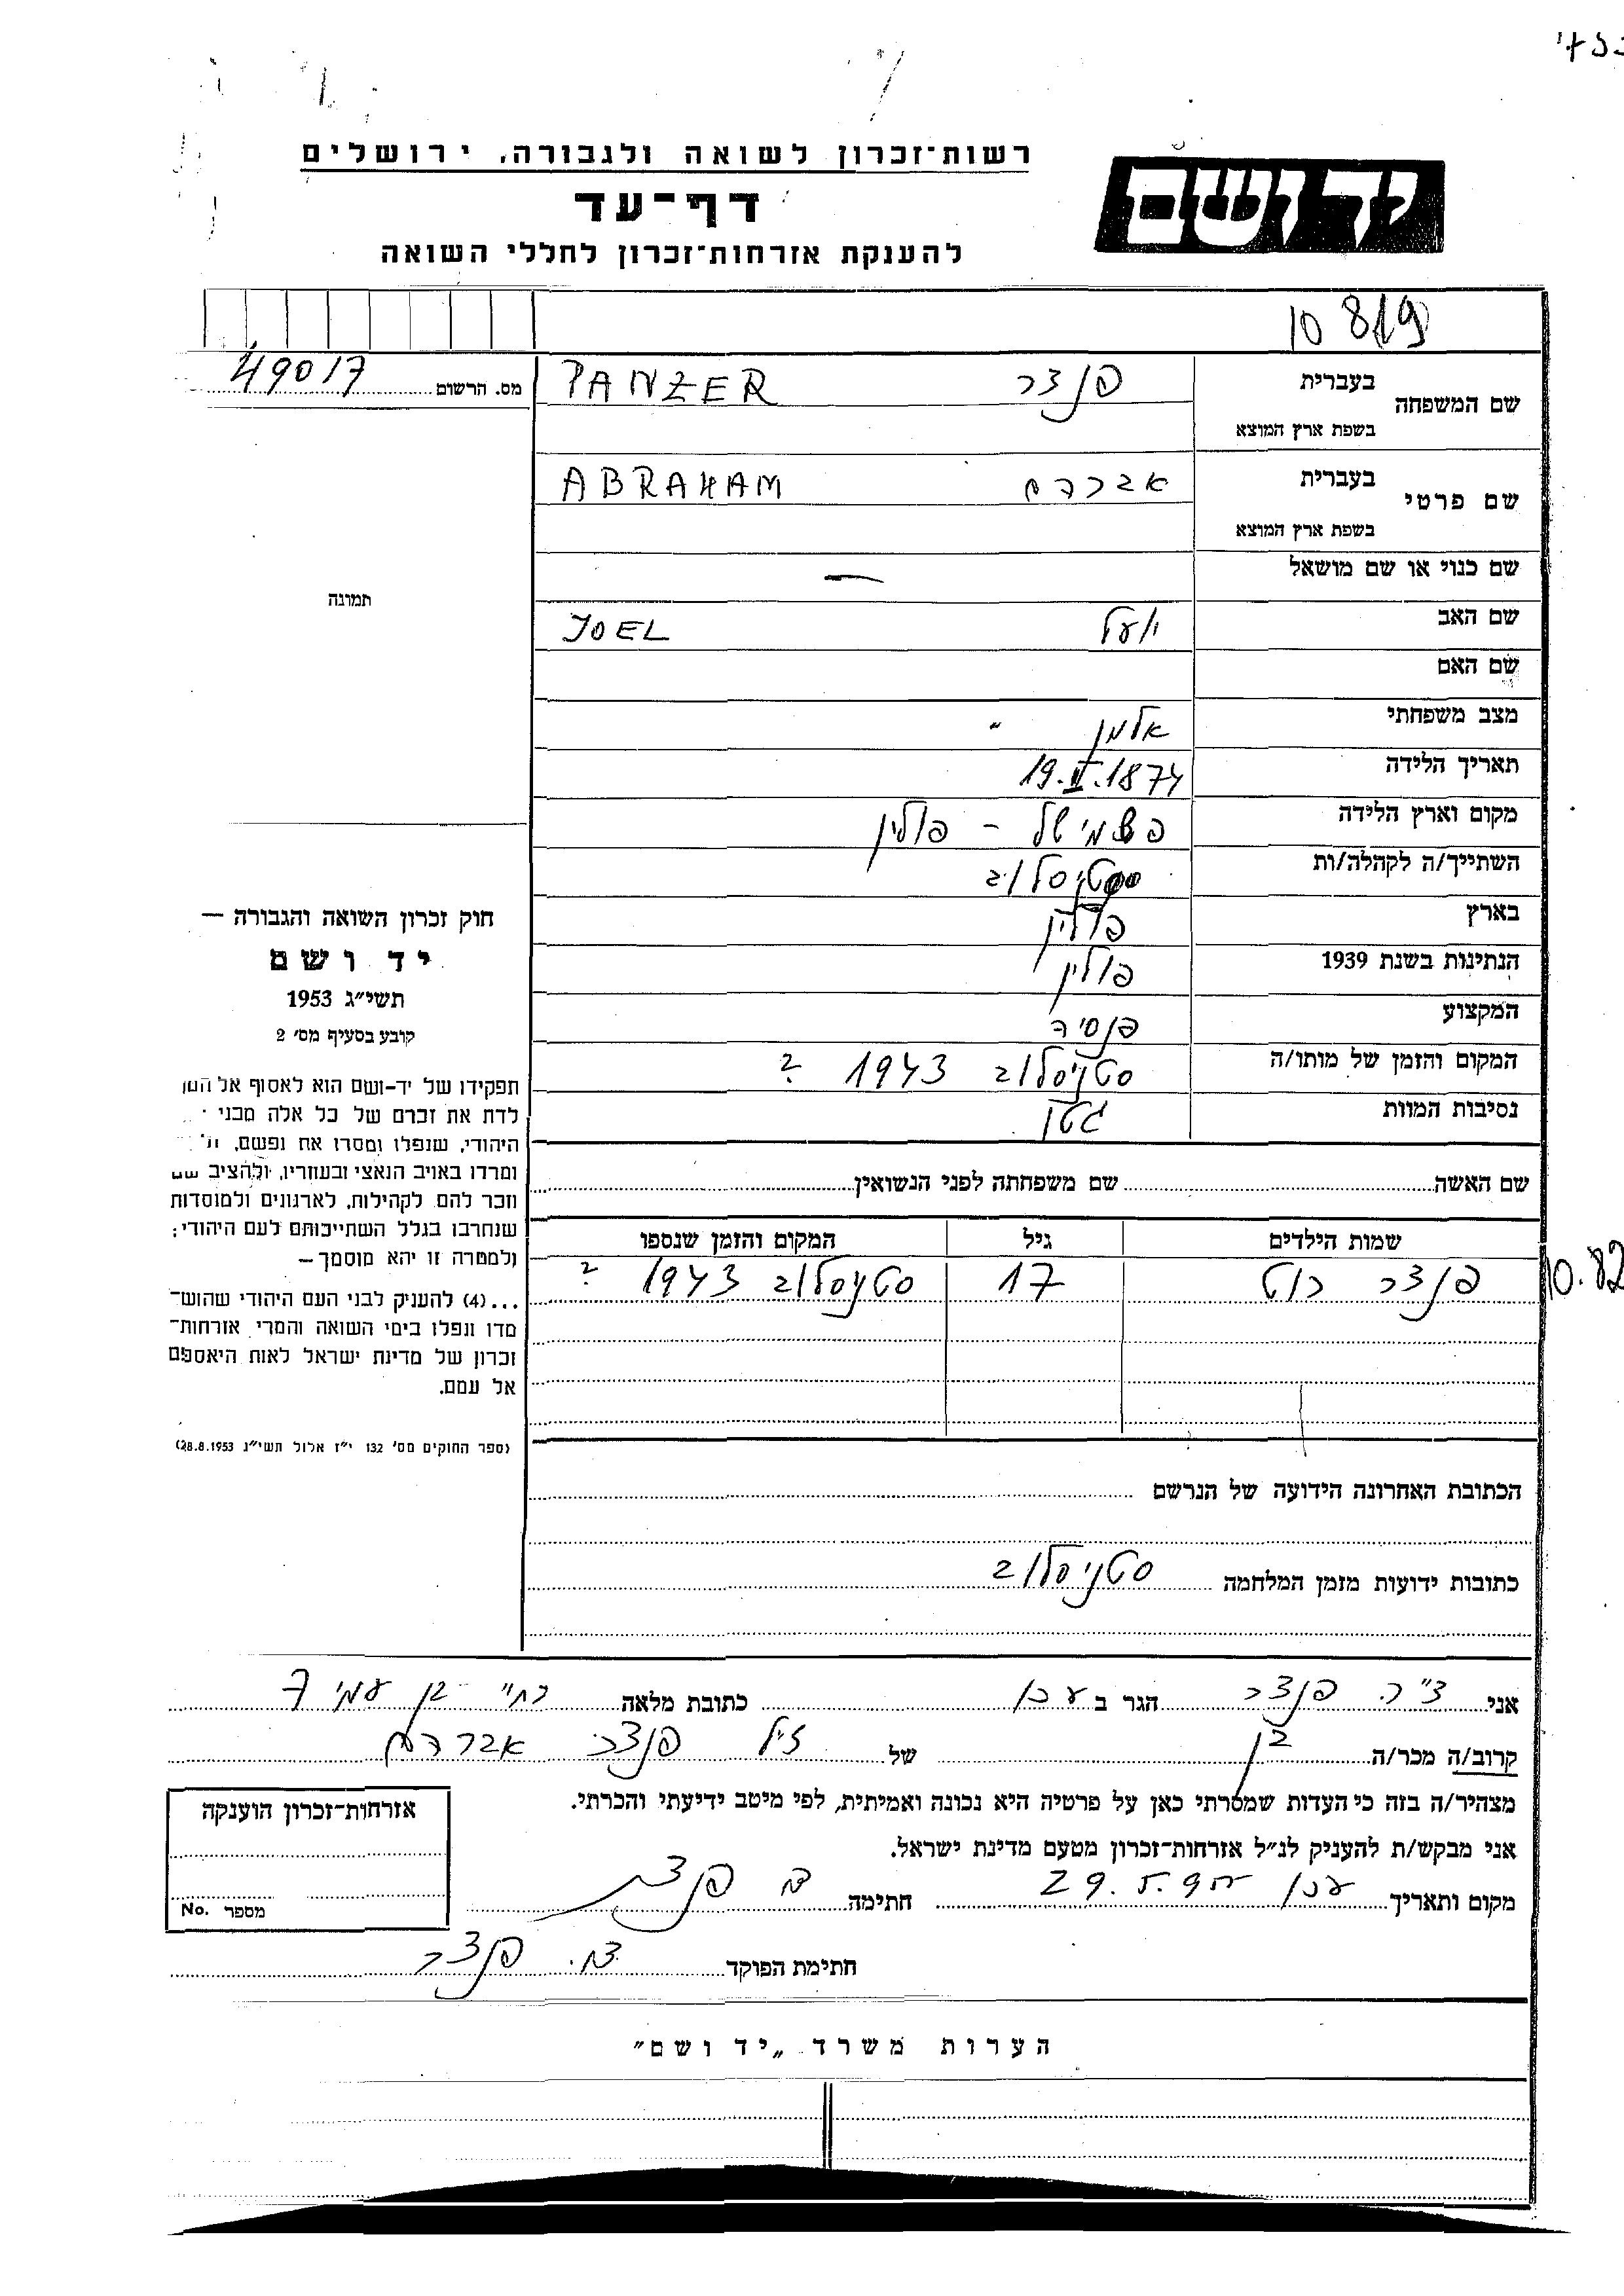 רשות־זכרון לשואה ולגבורה, ירושלים
יד ושם
דף־עד
להענקת אזרחות־זכרון לחללי השואה
10 819
מס. הרשום 49017
שם המשפחה בעברית פנצר PANZER
בשפת ארץ המוצא
שם פרטי בעברית אברהם ABRAHAM
בשפת ארץ המוצא
שם כנוי או שם מושאל —
תמונה
שם האב יועל JOEL
שם האם
מצב משפחתי אלמן
תאריך הלידה 19.II.1874
מקום וארץ הלידה פשמישל - פולין
השתייך/ה לקהלה/ות סטניסלוב
בארץ פולין
הנתינות בשנת 1939 פולין
המקצוע פנסיה
המקום והזמן של מותו/ה סטניסלוב 1943 ?
נסיבות המוות גטו
חוק זכרון השואה והגבורה —
יד ושם
תשי״ג 1953
קובע בסעיף מס׳ 2
תפקידו של יד-ושם הוא לאסוף אל
לדת את זכרם של כל אלה מבני
היהודי, שנפלו ומסרו את נפשם,
ומרדו באויב הנאצי ובעוזריו, ולהציב
וזכר להם לקהילות, לארגונים ולמוסדות
שנחרבו בגלל השתייכותם לעם היהודי;
ולמטרה זו יהא מוסמך—
...(4) להעניק לבני העם היהודי שהוש־
מדו ונפלו בימי השואה והמרי אזרחות־
זכרון של מדינת ישראל לאות היאספם
אל עמם.
(ספר החוקים מס׳ 132 י״ז אלול תשי״ג 28.8.1953)
שם האשה שם משפחתה לפני הנשואין
שמות הילדים גיל המקום והזמן שנספו
פנצר רוט 17 סטניסלוב 1943 ?
10.82
הכתובת האחרונה הידועה של הנרשם
כתובות ידועות מזמן המלחמה סטניסלוב
אני פנצר הגר ב עכו כתובת מלאה בן עמי 7
קרוב/ה מכר/ה בן של פנצר אברהם
מצהיר/ה בזה כי העדות שמסרתי כאן על פרטיה היא נכונה ואמיתית, לפי מיטב ידיעתי והכרתי.
אני מבקש/ת להעניק לנ״ל אזרחות־זכרון מטעם מדינת ישראל.
מקום ותאריך עכו 29.5. חתימה פנצר
חתימת הפוקד פנצר
אזרחות־זכרון הוענקה
מספר No.
הערות משרד „יד ושם״